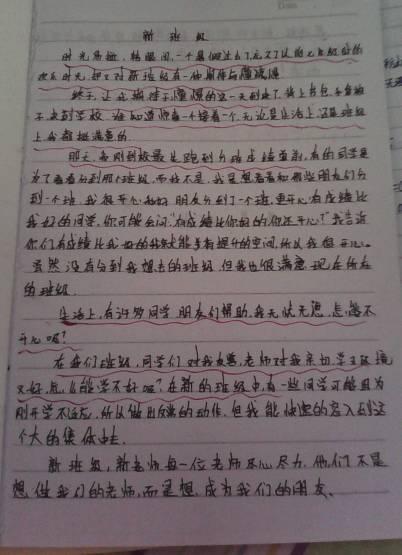 新班级
时光易逝,转眼间,一个暑假过去了,忘了以前七年级时的
欢乐时光,却又对新班级有一种期待与憧憬
终于,让我期待于憧憬的这一天到来了,背上书包
不及到学校,谁知道惊喜一个接着一个,无论是生活上,还是班级
上我都挺满意的
那天,我刚到校最先跑到分班点检查新,有的同学是
为了看看分到那个班级,而我不是,我是想看看和那些朋友们分
到一个班,我很开心和好朋友分到了一个班,更开心有成绩比
我好的同学,你可能会问:"有成绩比你好的,你还开心?"我告诉
你们有成绩比我好的我才能够有提升的空间,所以我很开心。
虽然没有分到我想去的班级,但我也很满意现在所在
的班级.
生活上,有许多同学,朋友们帮助,我无忧无患,怎能不
开心呢?
在我们班级,同学们对我友善,老师对我亲切,学习环境
又好,怎么能学不好呢?在新的班级中,有一些同学可能因为
刚开学不适应,所以做出反常的动作,但我能快速的容入到这
个大的集体中去.
新班级,新老师每一位老师尽心尽力,他们不是
想做我们的老师,而是想成为我们的朋友、